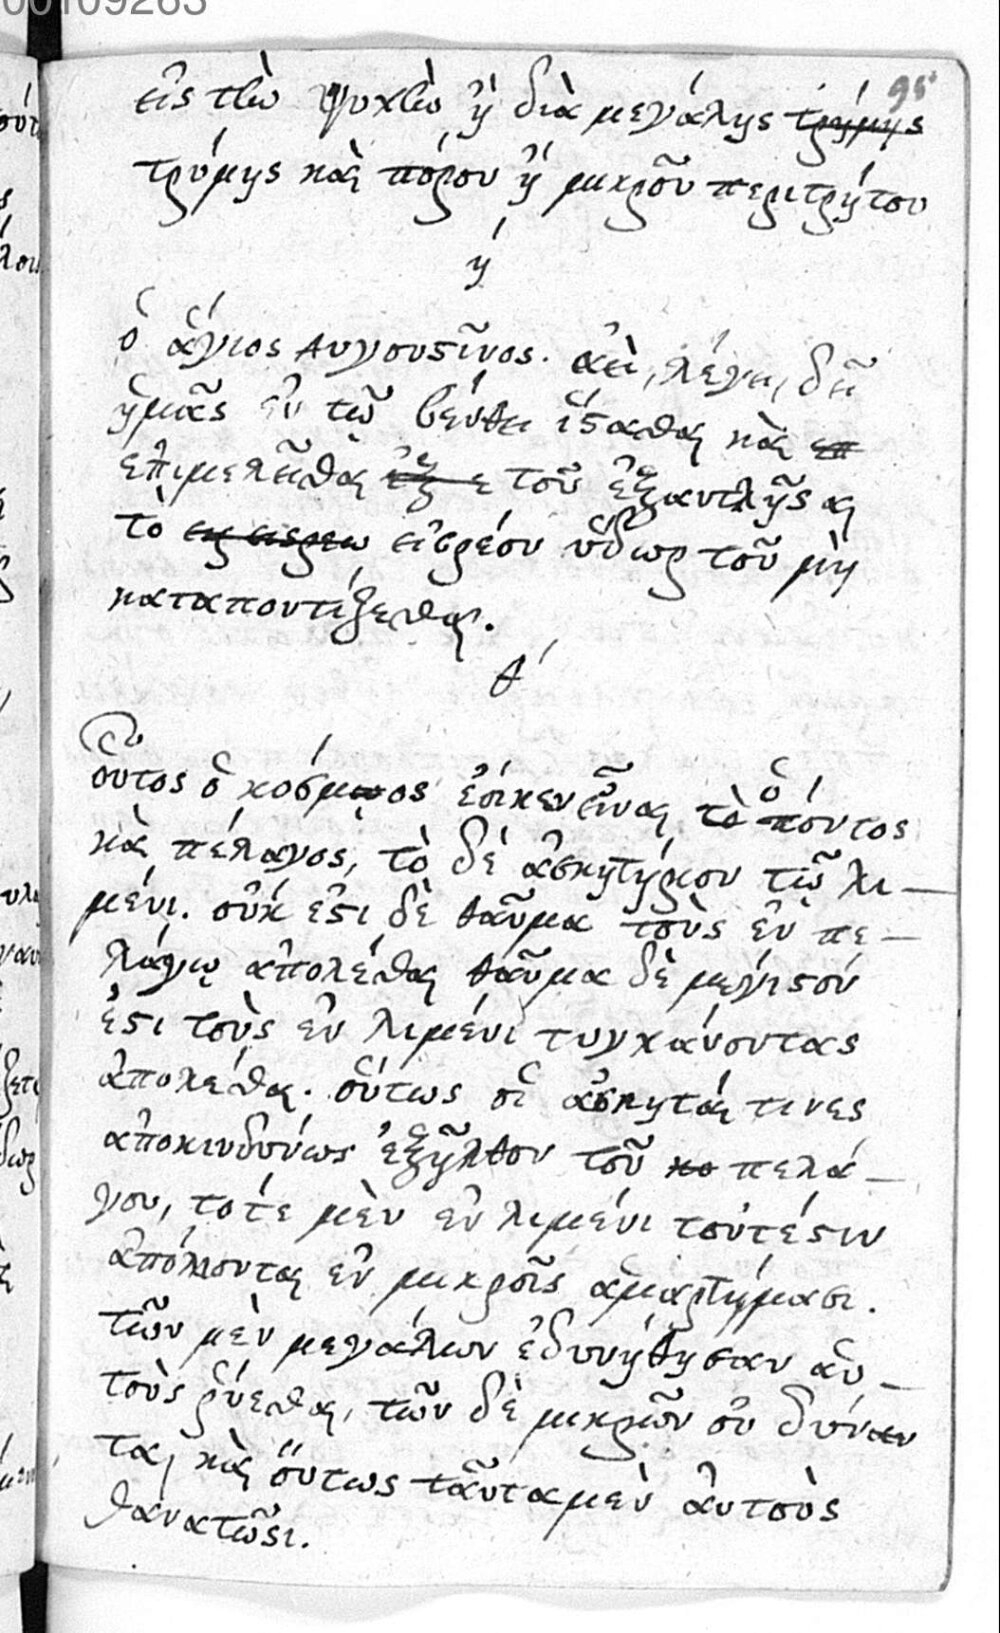 00109263
95
εἰς τὴν ψυχὴν ἢ διὰ μεγάλης τρήμης
τρύμης καὶ πόρου ἢ μικροῦ περιτρήτου
ή
ὁ ἅγιος Αυγουστῖνος. ἀεὶ, λέγει, δεῖ
ἡμᾶς ἐν τῷ βένθει ἵστασθαι καὶ επ
ἐπιμελεῖσθαι τοῦ ἐξαντλῆσαι
τὸ εἰσρέον ὕδωρ τοῦ μὴ
καταποντίζεσθαι.
θ´
Οὗτος ὁ κόσμος ἔοικεν εἶναι τὸ ὁ πόντος
καὶ πέλαγος, τὸ δὲ ἀσκητήριον τῷ λι–
μένι. οὐκ ἔστι δὲ θαῦμα τοὺς ἐν πε–
λάγῳ ἀπολέσθαι θαῦμα δὲ μέγιστόν
ἐστι τοὺς ἐν λιμένι τυγχάνοντας
ἀπολέσθαι. οὕτως οἱ ἀσκηταί τινες
ἀποκινδύνως ἐξῆλθον τοῦ κο πελά–
γου, τότε μὲν ἐν λιμένι τουτέστιν
ἀπόλλονται ἐν μικροῖς ἁμαρτήμασι.
τῶν μὲν μεγάλων ἐδυνήθησαν αὑ–
τοὺς ῥύεσθαι, τῶν δὲ μικρῶν οὐ δύναν
ται καὶ οὕτως ταῦτα μὲν αὐτοὺς
θανατῶσι.